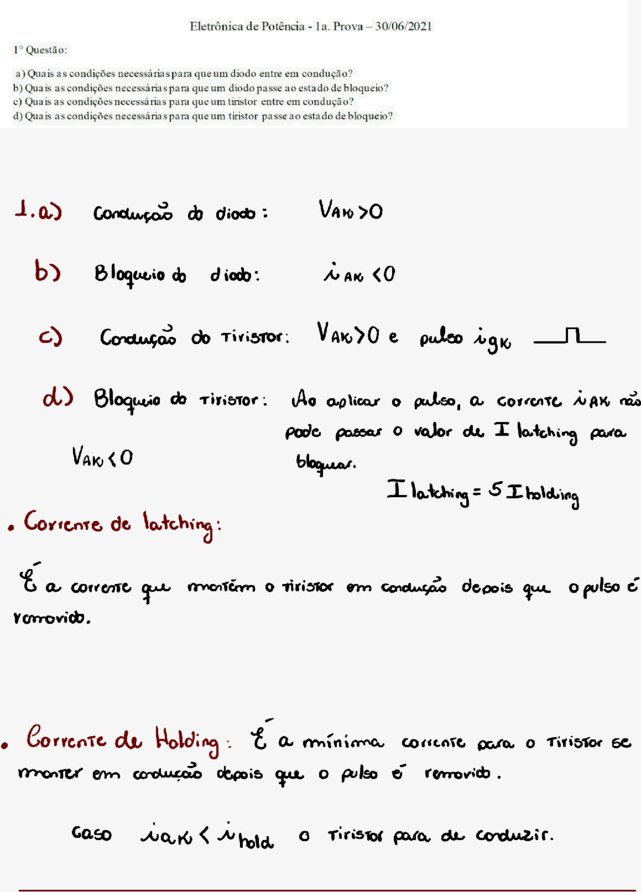 Eletrônica de Potência - 1a. Prova – 30/06/2021
1° Questão:
a) Quais as condições necessárias para que um diodo entre em condução?
b) Quais as condições necessárias para que um diodo passe ao estado de bloqueio?
c) Quais as condições necessárias para que um tiristor entre em condução?
d) Quais as condições necessárias para que um tiristor passe ao estado de bloqueio?
1.a) Condução do diodo: VAK>0
b) Bloqueio do diodo: iAK <0
c) Condução do Tiristor: VAK>0 e pulso igK
d) Bloqueio do Tiristor: Ao aplicar o pulso, a corrente iAK não
pode passar o valor de I latching para
VAK<0 bloquear.
I latching = 5 I holding
• Corrente de latching:
É a corrente que mantém o tiristor em condução depois que o pulso é
removido.
• Corrente de Holding: É a mínima corrente para o Tiristor se
manter em condução depois que o pulso é removido.
Caso iaK < ihold o Tiristor para de conduzir.